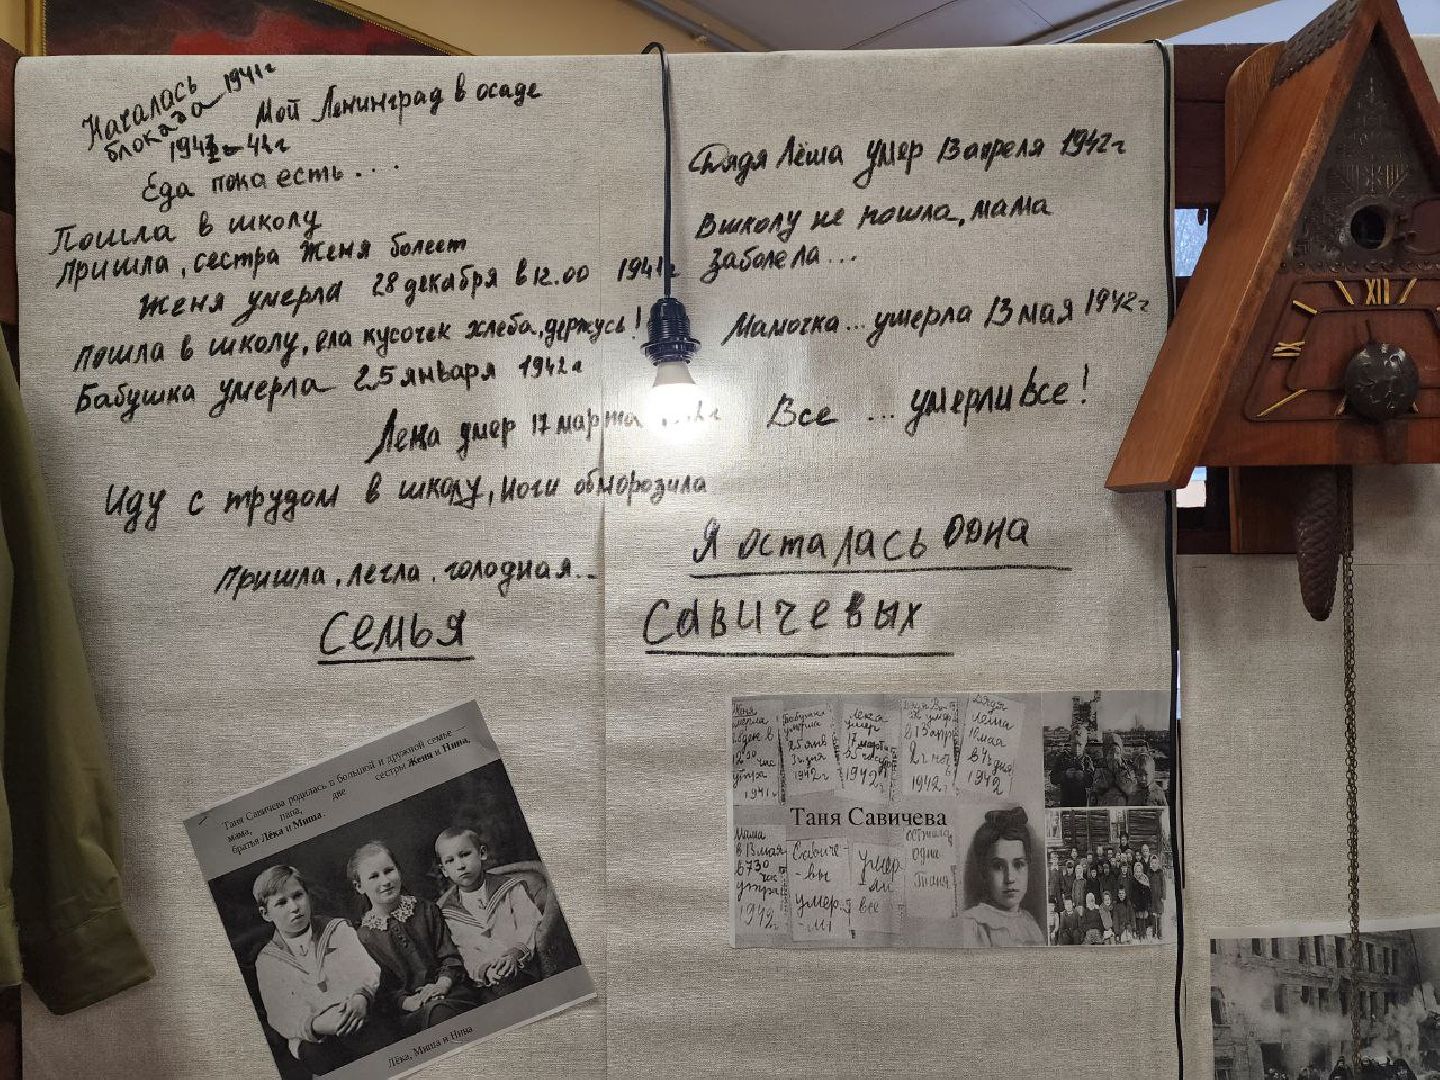 Началась
блокада 1941г
1941г-44г
Мой Ленинград в осаде
Еда пока есть...
Пошла в школу
Пришла, сестра Женя болеет
Женя умерла 28 декабря в 12.00 1941г
Пошла в школу, ела кусочек хлеба, держусь!
Бабушка умерла 25 января 1942г
Лека умер 17 марта
Иду с трудом в школу, ноги обморозила
Пришла, легла, голодная...
Дядя Лёша умер 13 апреля 1942г
В школу не пошла, мама
заболела...
Мамочка... умерла 13 мая 1942г
Все ... умерли все!
Я осталась одна
Семья Савичевых
Таня Савичева родилась в большой и дружной семье —
мама, папа, две сестры Женя и Нина,
братья Лёка и Миша.
Лёка, Миша и Нина
Женя
умерла
28 дек в
12 00 час
утра
1941 г
Бабушка
умерла
25 янв
3ч дня
1942 г
Лека
умер
17 марта
1942 г
1942 г
Дядя
Лёша
10 мая
в 4ч дня
1942 г
Таня Савичева
Мама
в 13 мая
в 7 30
час
утра
1942 г
Савиче-
-вы
умер-
-ли
умер
-ли
все
осталась
одна
Таня
XII